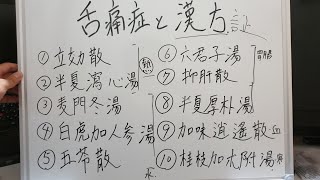 舌痛症と漢方証
① 立効散
② 半夏瀉心湯
熱
③ 麦門冬湯
④ 白虎加人参湯
⑤ 五苓散
水
⑥ 六君子湯
胃腸
⑦ 抑肝散
⑧ 半夏厚朴湯
⑨ 加味逍遥散
血
⑩ 桂枝加朮附湯